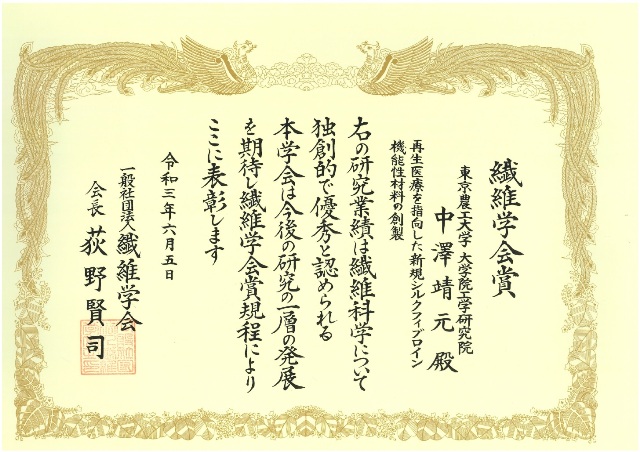 繊維学会賞
東京農工大学 大学院工学研究院
中澤靖元 殿
再生医療を指向した新規シルクフィブロイン
機能性材料の創製
右の研究業績は繊維科学について
独創的で優秀と認められる
本学会は今後の研究の一層の発展
を期待し繊維学会賞規程により
ここに表彰します
令和三年六月五日
一般社団法人繊維学会
会長 荻野賢司